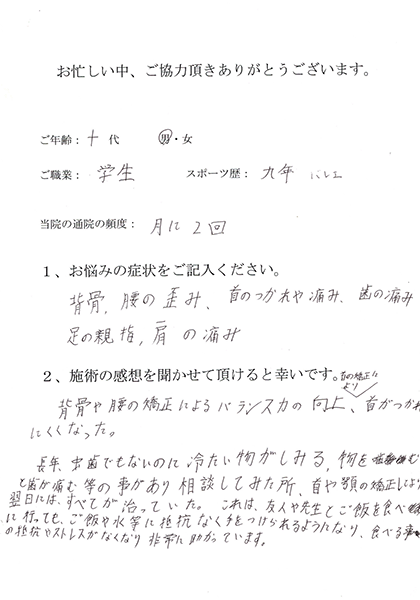 お忙しい中、ご協力頂きありがとうございます。
ご年齢：十代　男・女
ご職業：学生　スポーツ歴：九年 バレエ
当院の通院の頻度：月に2回
1、お悩みの症状をご記入ください。
背骨, 腰の歪み、首のつかれや痛み、歯の痛み
足の親指, 肩の痛み
2、施術の感想を聞かせて頂けると幸いです。
首の矯正により
背骨や腰の矯正によるバランス力の向上、首がつかれ
にくくなった。
長年、虫歯でもないのに冷たい物がしみる, 物を噛む
と歯が痛む等の事があり相談してみた所、首や顎の矯正により
翌日には、すべてが治っていた。これは、友人や先生とご飯を食べ
に行っても、ご飯や水等に抵抗なく手をつけられるようになり、食べる事へ
の抵抗やストレスがなくなり非常に助かっています。